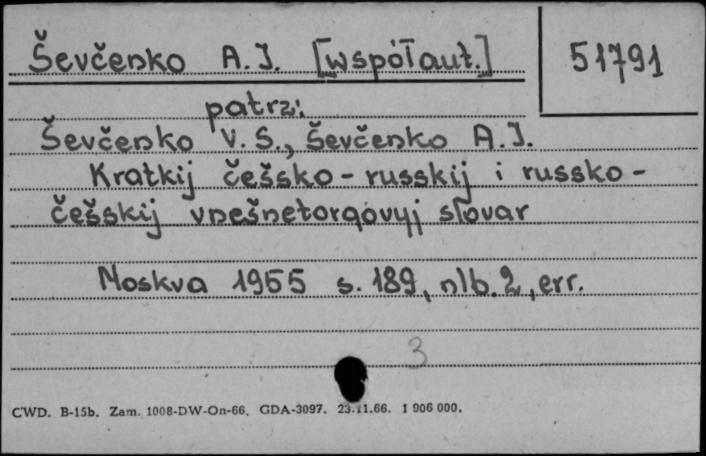 Ševčenko A.J. [współaut.] 51791
patrz:
Ševčenko V.S., Ševčenko A.J.
Kratkij češsko-russkij i russko-
češskij vnešnetorgovyj slovar
Moskva 1955 s. 189, nlb. 2, err.
3
CWD. B-15b. Zam. 1008-DW-On-66. GDA-3097. 23.11.66. 1 906 000.